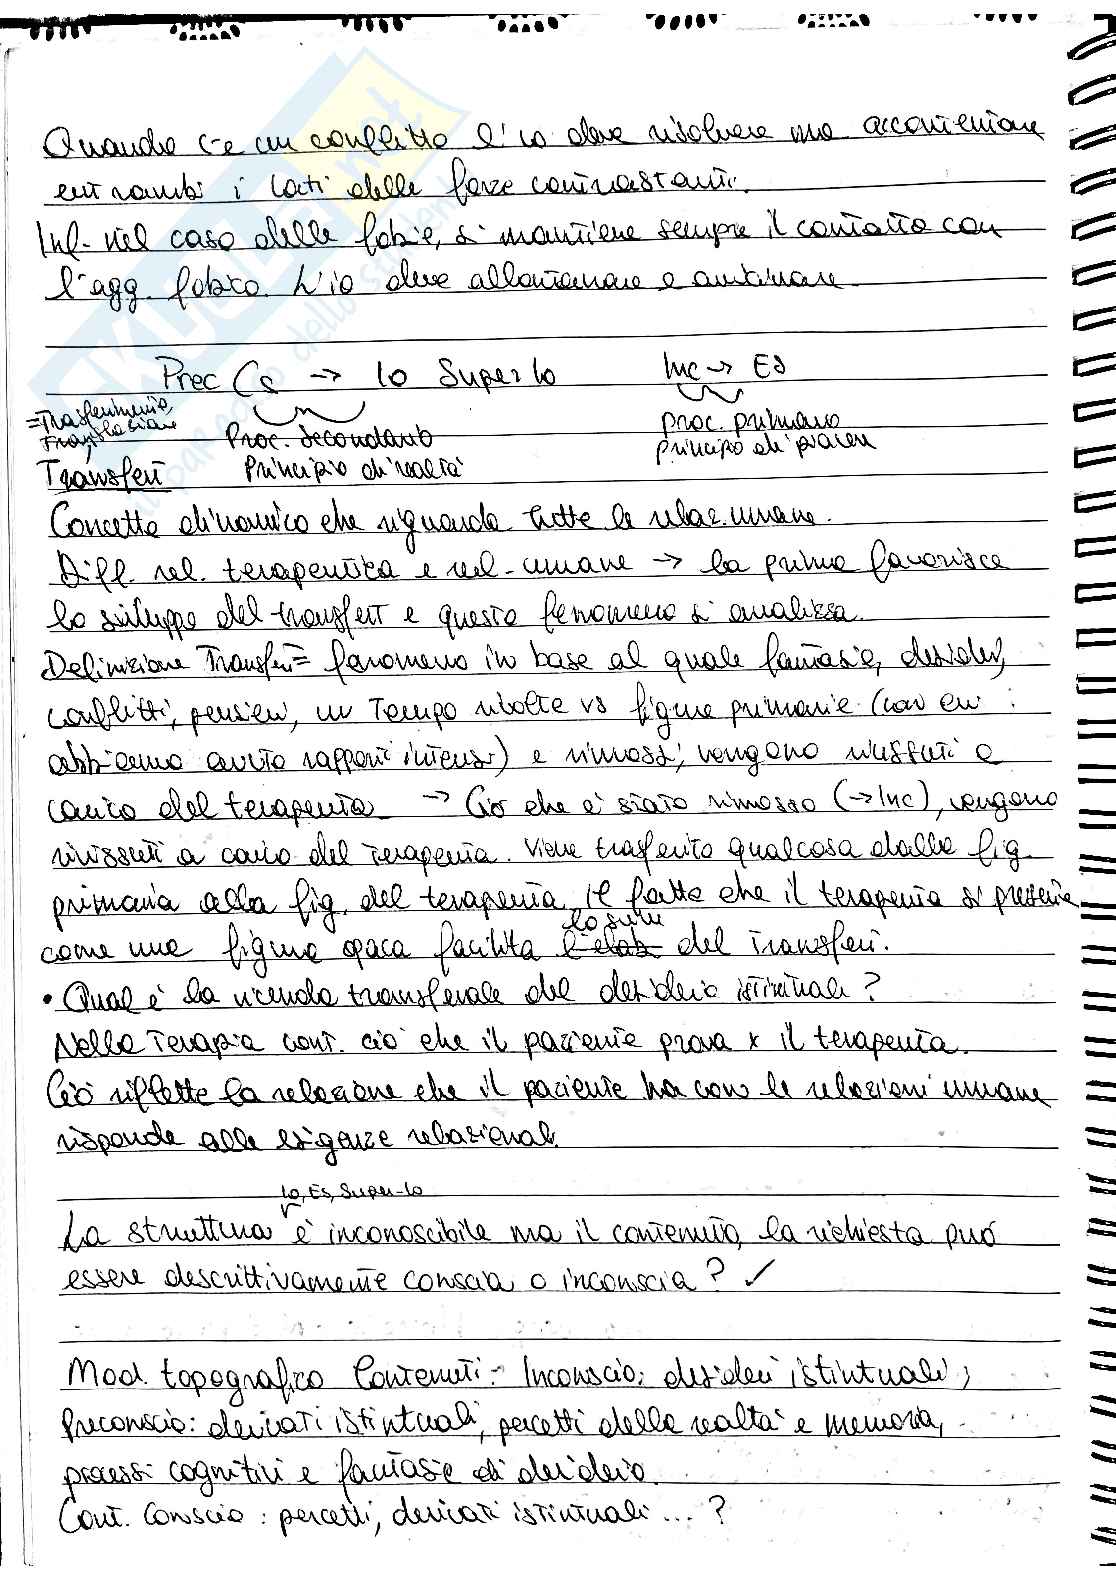 Quando c'è un conflitto l'io deve risolvere ma accontentare
entrambi i lati delle forze contrastanti.
Inf. nel caso delle fobie, si mantiene sempre il contatto con
l'agg. fobico. L'io deve allontanare e avvicinare
Prec Cs → Io SuperIo Inc → Es
=Trasferimento,
Traslazione
Proc. secondario proc. primario
Principio di realtà principio di piacere
Transfert
Concetto dinamico che riguarda tutte le relaz. umane.
Diff. rel. terapeutica e rel. umane → la prima favorisce
lo sviluppo del transfert e questo fenomeno si analizza.
Definizione Transfert = fenomeno in base al quale fantasie, desideri,
conflitti, pensieri, un tempo rivolte vs figure primarie (con cui
abbiamo avuto rapporti intensi) e rimossi, vengono vissuti a
carico del terapeuta → Ciò che è stato rimosso (→Inc), vengono
rivissuti a carico del terapeuta. Viene trasferito qualcosa dalla fig.
primaria alla fig. del terapeuta. Il fatto che il terapeuta si presenta
come una figura opaca facilita l'elab del Transfert.
• Qual è la vicenda transferale del desiderio istintuali?
Nella Terapia cont. ciò che il paziente prova x il terapeuta.
Ciò riflette la relazione che il paziente ha con le relazioni umane
risponde alle esigenze relazionali.
Io, Es, Super-Io
La struttura è inconoscibile ma il contenuto, la richiesta può
essere descrittivamente conscia o inconscia? ✓
Mod. topografico Contenuti - Inconscio: desideri istintuali;
Preconscio: derivati istintuali, percetti della realtà e memoria,
processi cognitivi e fantasie di desiderio.
Cont. Conscio: percetti, derivati istintuali ... ?